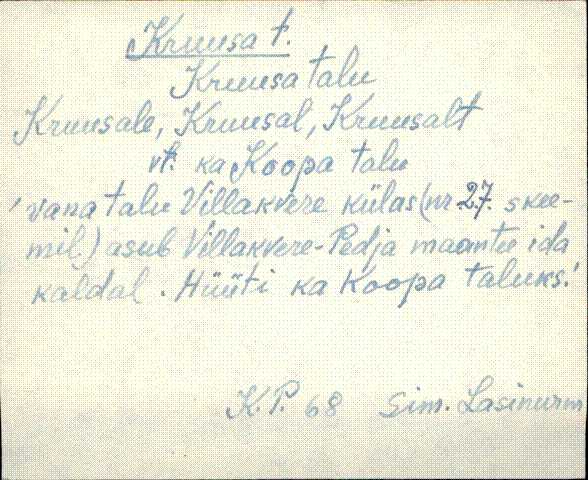 Kruusa t.
Kruusa talu
Kruusale, Kruusal, Kruusalt
vt. ka Koopa talu
'vana talu Villakvere külas (nr. 27. skee-
mil.) asub Villakvere-Pedja maantee ida
kaldal. Hüüti ka Koopa taluks.'
K.P. 68 Sim. Lasinurm